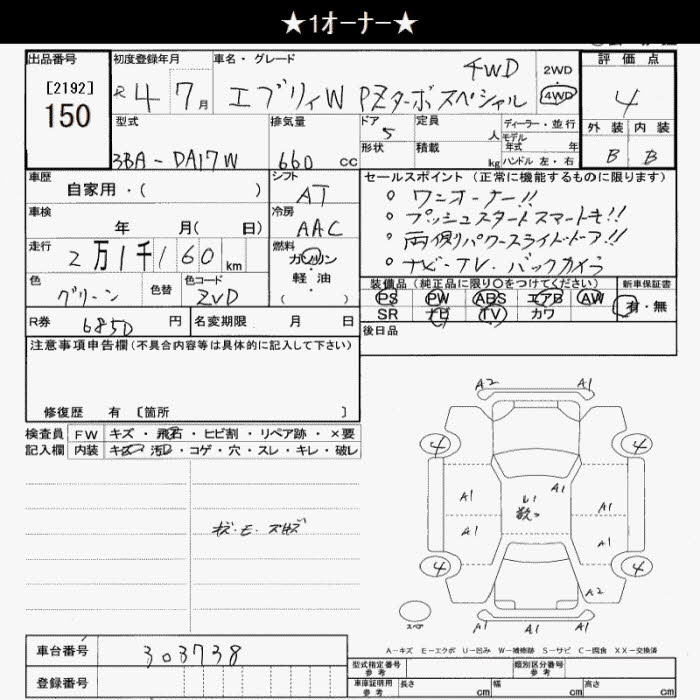 ★1オーナー★
出品番号 初度登録年月 車名・グレード 4WD 2WD 評価点
[2192]
150
R 4 7月 エブリィW PZターボスペシャル 4WD 4
型式 排気量 ドア 定員 ディーラー・並行 外装 内装
3BA-DA17W 660 cc 5 人 モデル年式 年 B B
形状 積載 kg ハンドル 左・右
車歴 シフト セールスポイント (正常に機能するものに限ります)
自家用・( ) AT
。ワンオーナー!!
車検 冷房
年 月( 日) AAC
。プッシュスタートスマートキー!!
走行 燃料
2万1千160km ガソリン・軽油・( )
。両側パワースライドドア!!
。ナビ・TV・バックカメラ
色 色替 色コード
グリーン ZVD
装備品 (純正品に限り○をつけてください) 新車保証書
PS PW ABS エアB AW 有・無
SR ナビ TV カワ
R券 6850 円 名変期限 月 日
後日品
注意事項申告欄 (不具合内容等は具体的に記入して下さい)
修復歴 有 [箇所 ]
検査員 FW キズ・飛石・ヒビ割・リペア跡・×要
記入欄 内装 キズ・汚レ・コゲ・穴・スレ・キレ・破レ
A2 A1
4 4
A1 A1 A1
A1 A1
4 4
A2
スペア A1 A1
A-キズ E-エクボ U-凹み W-補修跡 S-サビ C-腐食 XX-交換済
車台番号 303738
登録番号
型式指定番号 参考 類別区分番号 参考
車庫証明用 参考 長さ cm 幅 cm 高さ cm